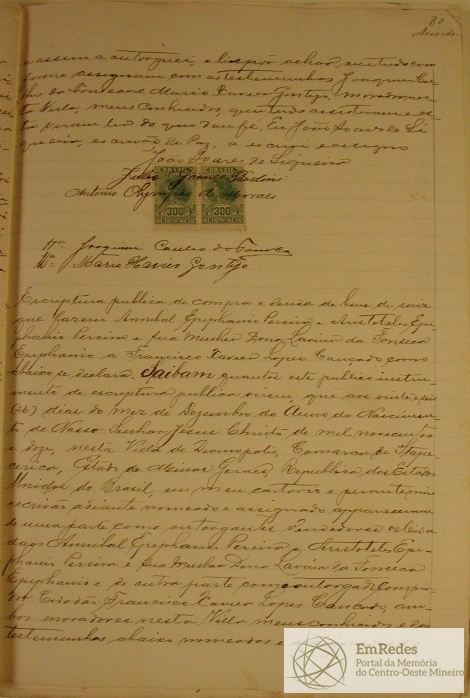 80
Azevedo
e assim a outorguei, e lies por achar em tudo con
forme assignam com as testemunhas Joaquim Coe
lho da Fonseca e Mario Xavier Gontijo, moradores nes
ta Villa, meus conhecidos, que tudo assistiram e es
ta viram ler do que dou fé. Eu João Soares de Si
queira, escrivão de Paz, a escrevi e assigno
João Soares de Siqueira
Antonio Olympio de Moraes
BRAZIL
BRAZIL
300
300
REIS
REIS
1ª Joaquim Coelho da Fonseca
2ª Mario Xavier Gontijo
Escriptura publica de compra e venda de bens de raiz
que fazem Annibal Epiphanio Pereira e Aristoteles Epi-
phanio Pereira e sua mulher Dona Lavina da Fonseca
Epiphanio a Francisco Xavier Lopes Cançado como
abaixo se declara. Saibam quantos este publico instru-
mento de escriptura publica virem, que aos vinte e seis
(26) dias do mez de Dezembro do Anno do Nascimen-
to de Nosso Senhor Jesus Christo de mil novecentos
e doze, nesta Villa de Divinopolis, Comarca de Itape
cerica, Estado de Minas Geraes, Republica dos Estados
Unidos do Brasil, em meu cartorio e perante mim
escrivão adiante nomeado e assignado appareceram
de uma parte como outorgantes vendedores os Cida
dãos Annibal Epiphanio Pereira e Aristoteles Epi-
phanio Pereira e sua mulher Dona Lavina da Fonseca
Epiphanio e de outra parte como outorgado Compra
dor Cidadão Francisco Xavier Lopes Cançado, am-
bos moradores nesta Villa meus conhecidos e das
testemunhas abaixo nomeadas e
EmRedes
Portal da Memória
do Centro-Oeste Mineiro